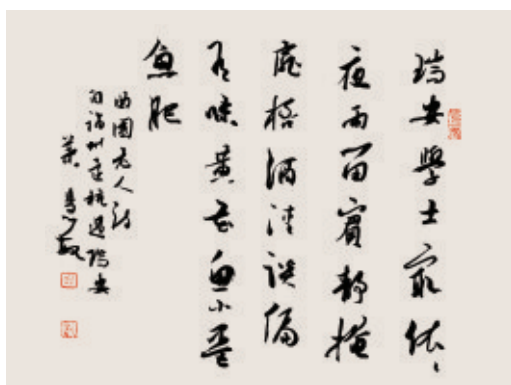 瑞安學士最依〻
夜雨留賓靜掩
扉桮酒清談偏
有味黃花魚小墨
魚肥
曲園老人詩
自福州至杭過瑞安
葉